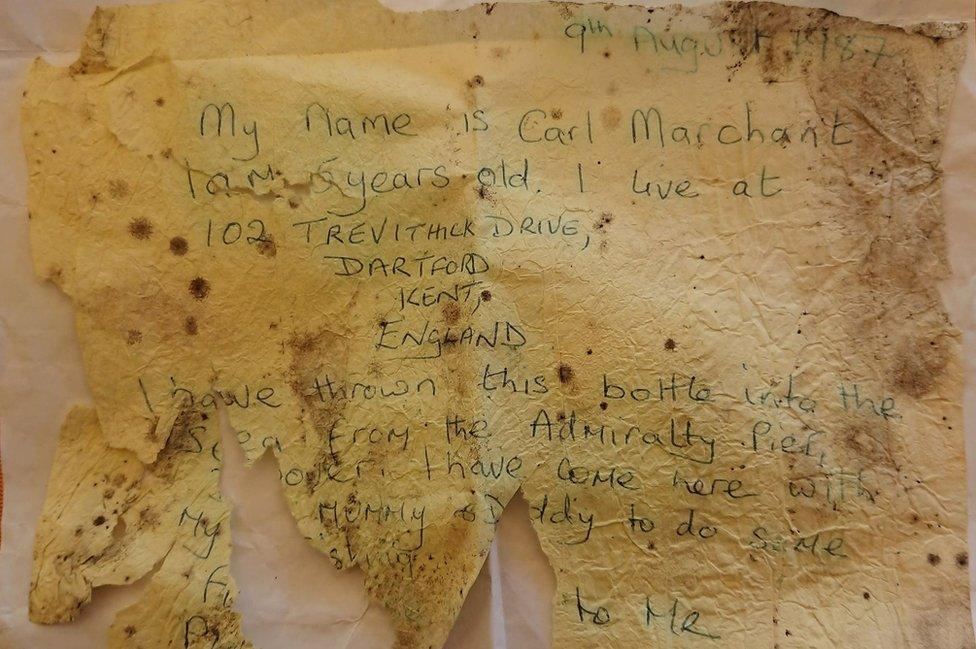 9th August 1987
My Name is Carl Marchant
I am 5 years old. I live at
102 TREVITHICK DRIVE,
DARTFORD
KENT,
ENGLAND
I have thrown this bottle into the
Sea from the Admiralty Pier,
over. I have come here with
My Mummy & D ddy to do some
to Me